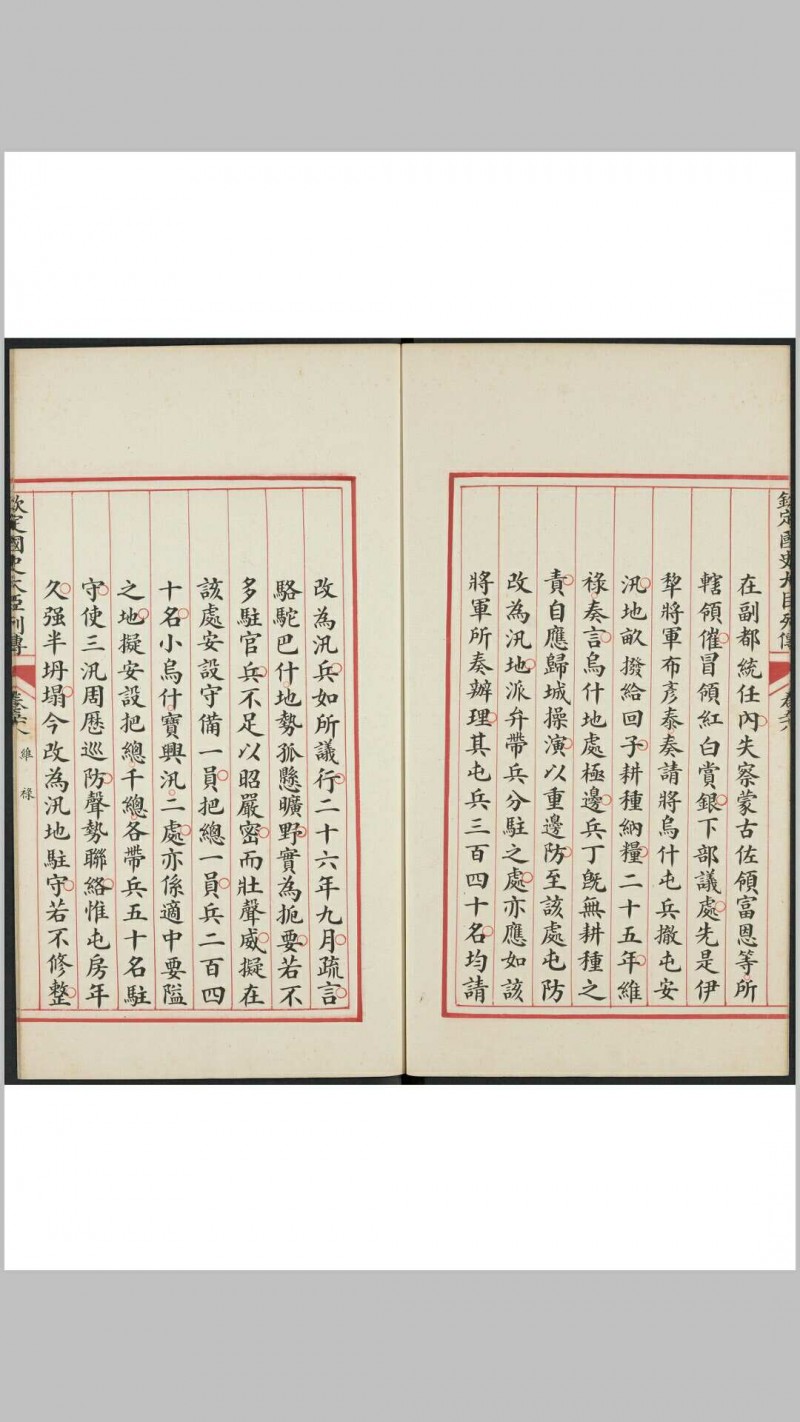 欽定國史大臣列傳
在副都統任內失察蒙古佐領富恩等所
轄領催冒領紅白賞銀下部議處先是伊
犂將軍布彥泰奏請將烏什屯兵撤屯安
汛地畝撥給回子耕種納糧二十五年維
祿奏言烏什地處極邊兵丁旣無耕種之
責自應歸城操演以重邊防至該處屯防
改為汛地派弁帶兵分駐之處亦應如該
將軍所奏辦理其屯兵三百四十名均請
改為汛兵如所議行二十六年九月疏言
駱駝巴什地勢孤懸曠野實為扼要若不
多駐官兵不足以昭嚴密而壯聲威擬在
該處安設守備一員把總一員兵二百四
十名小烏什寶興汛二處亦係適中要隘
之地擬安設把總千總各帶兵五十名駐
守使三汛周歷巡防聲勢聯絡惟屯房年
久强半坍塌今改為汛地駐守若不修整
欽定國史大臣列傳
維祿